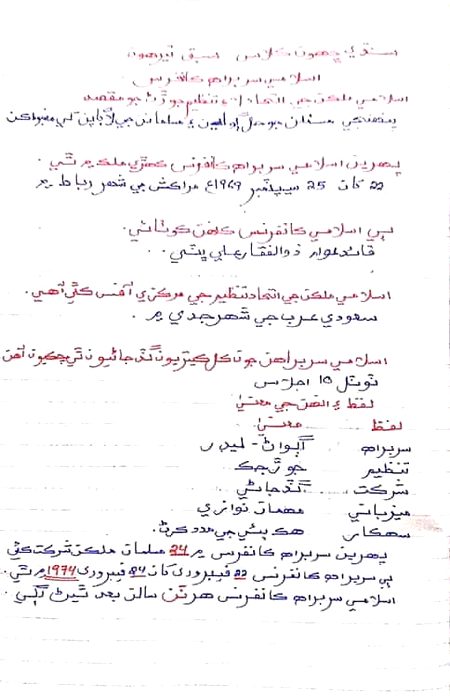 سنڌي ڇهون ڪلاس سبق تيرهون
اسلامي سربراهه ڪانفرنس
اسلامي ملڪن جي اتحاد ۽ تنظيم جوڙڻ جو مقصد
پنهنجي مسئلن جو حل ڳولهيون ۽ مسلمانن جي لاءِ
پهرين اسلامي سربراهه ڪانفرنس ڪهڙي ملڪ ۾ ٿي.
22 کان 25 سيپٽمبر 1969ع مراڪش جي شهر رباط ۾
ٻي اسلامي ڪانفرنس ڪنهن ڪوٺائي.
قائدعوام ذوالفقار علي ڀٽي.
اسلامي ملڪن جي اتحاد تنظيم جي مرڪزي آفيس ڪٿي آهي.
سعودي عرب جي شهر جدي ۾.
اسلامي سربراهن جون ڪل ڪيتريون گڏجاڻيون ٿي چڪيون آهن
ٽوٽل 10 اجلاس
لفظ ۽ انهن جي معنيٰ
لفظ معنيٰ
سربراهه اڳواڻ - ليڊر
تنظيم جوڙجڪ
شرڪت گڏجاڻي
ميزباني مهمان نوازي
سهڪار هڪ ٻئي جي مدد ڪرڻ.
پهرين سربراهه ڪانفرنس ۾ 24 مسلمان ملڪن شرڪت ڪئي
ٻي سربراهه ڪانفرنس 22 فيبروري کان 24 فيبروري 1974 ۾ ٿي.
اسلامي سربراهه ڪانفرنس هر ٽن سالن بعد ٿيڻ لڳي.